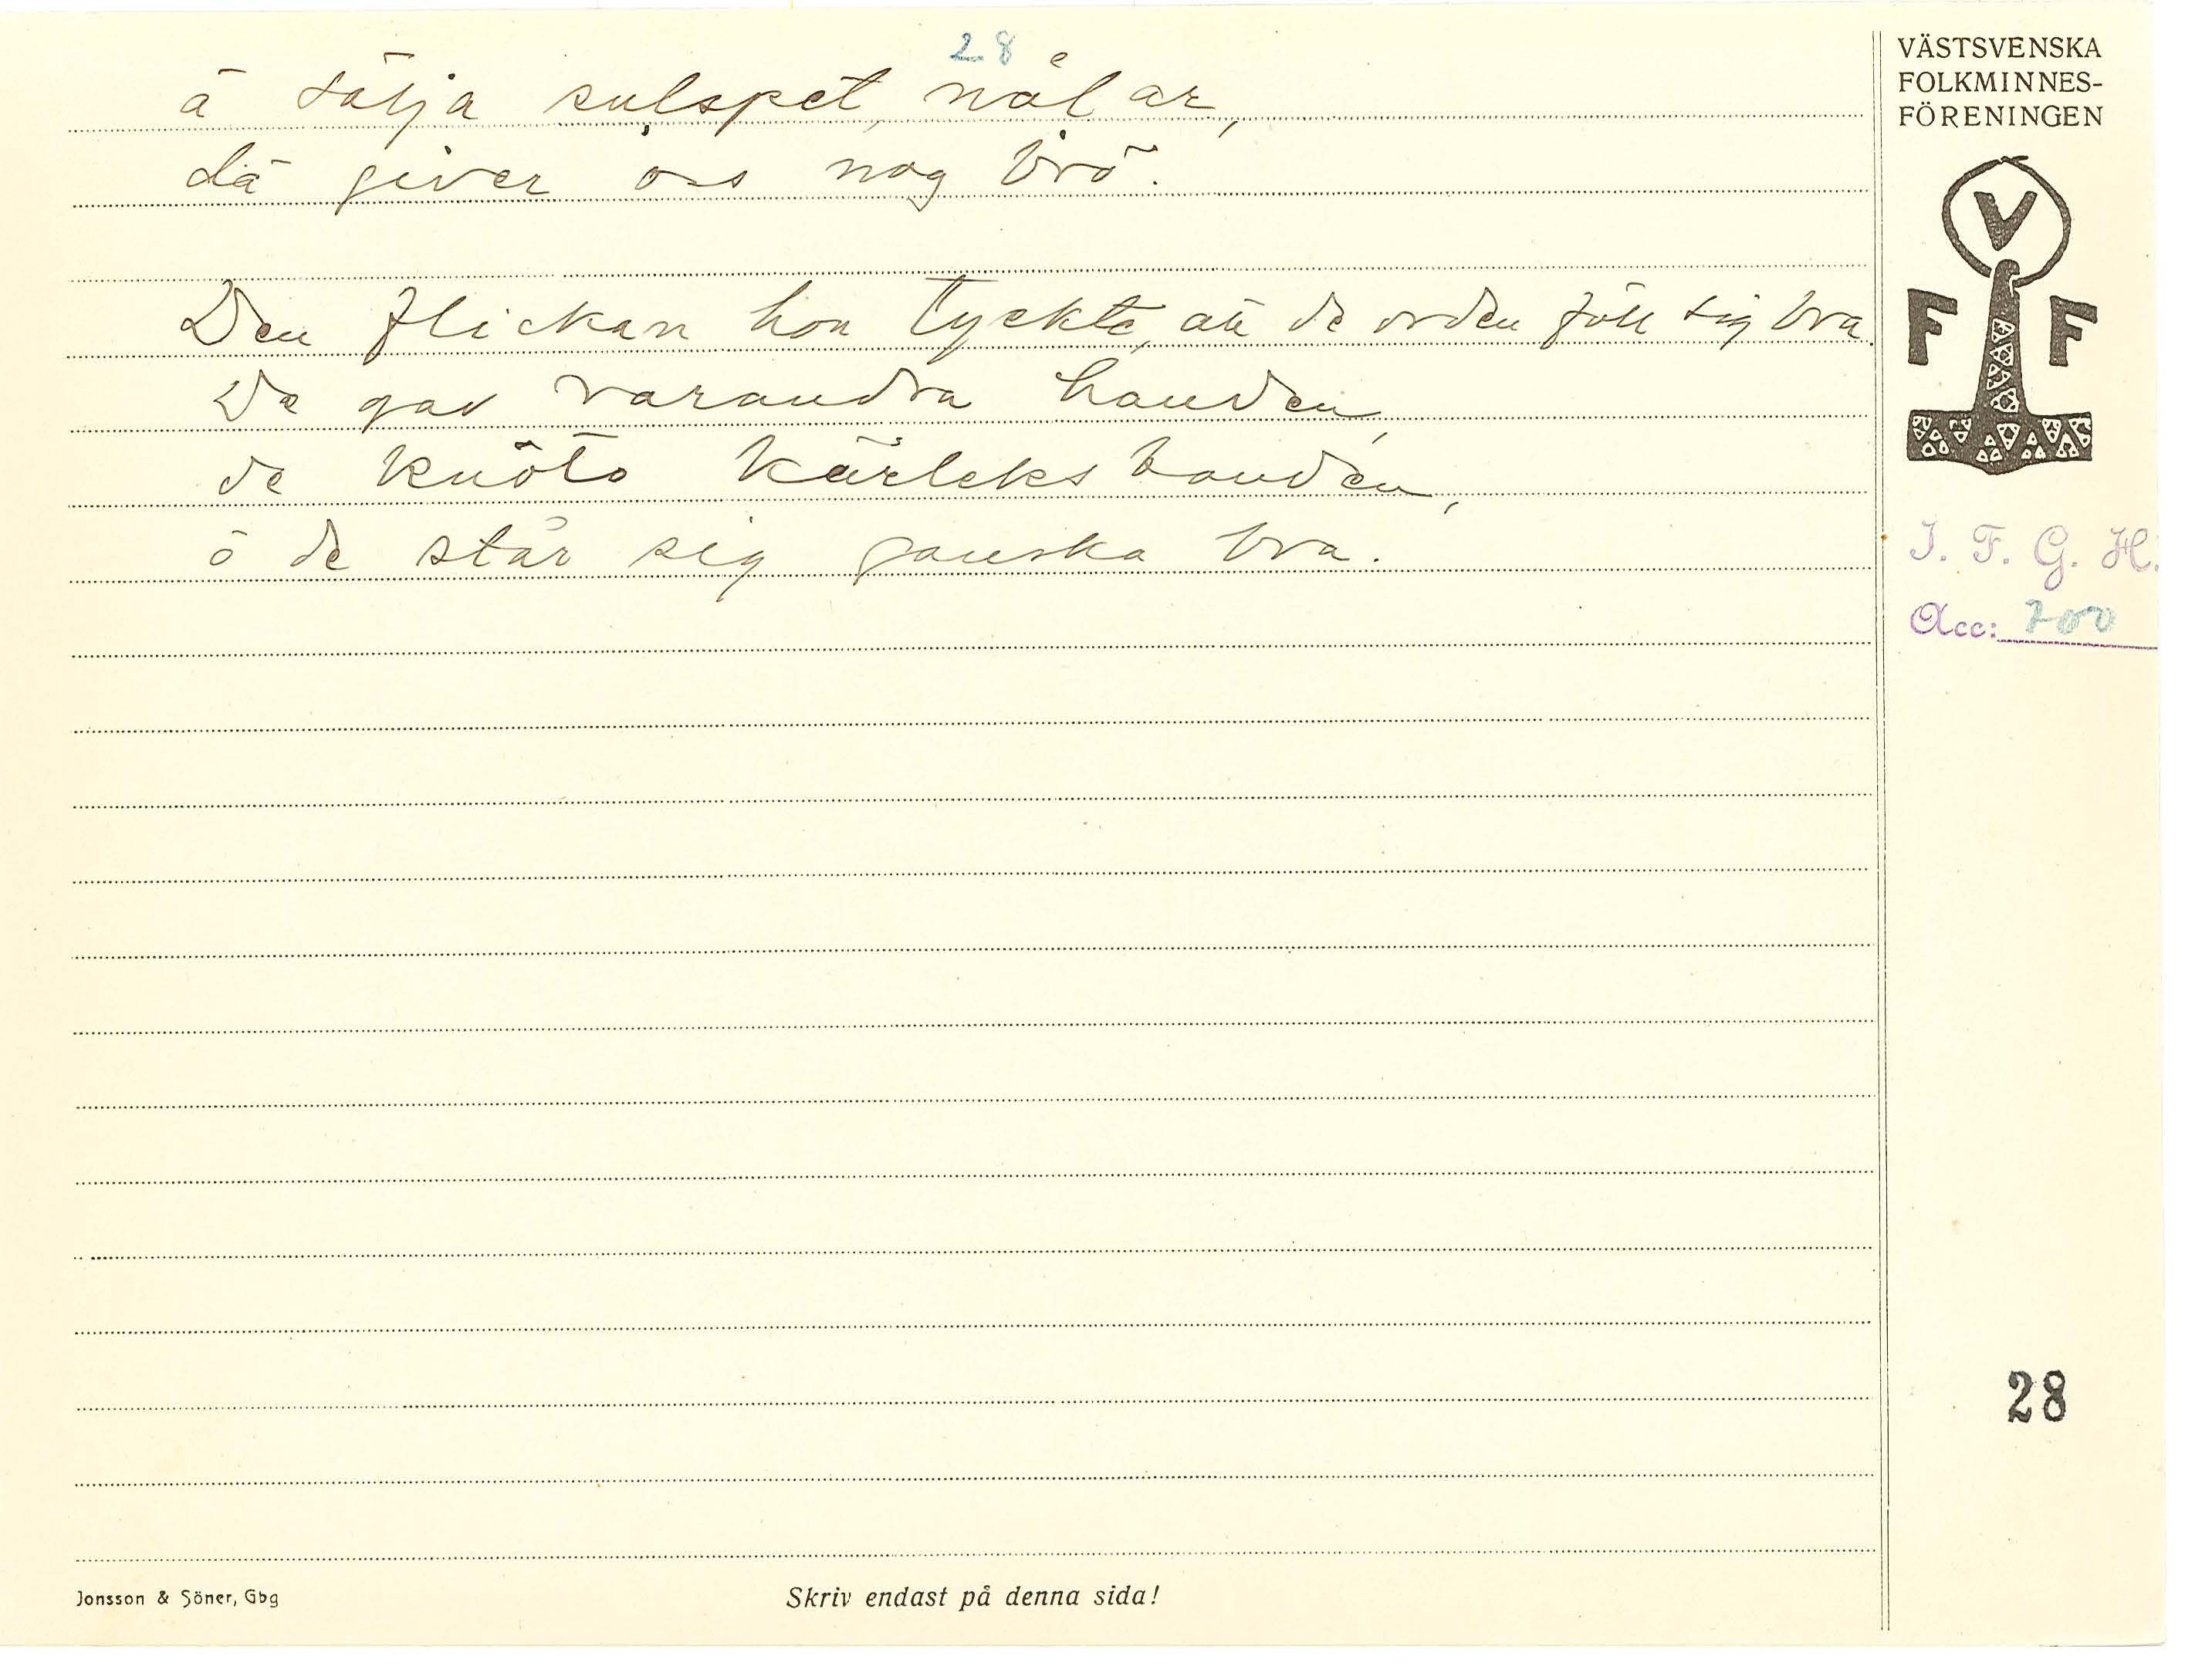 28
ä sälja
nålar,
dä giver oss nog brö.
Den flickan hon tyckte, att de orden föll sig bra.
De gav varandra handen,
de knöto kärleksbanden,
ö de står sig ganska bra.
VÄSTSVENSKA
FOLKMINNES-
FÖRENINGEN
V
F F
I. F. G. H.
Acc: 700
28
Jonsson & Söner, Gbg
Skriv endast på denna sida!